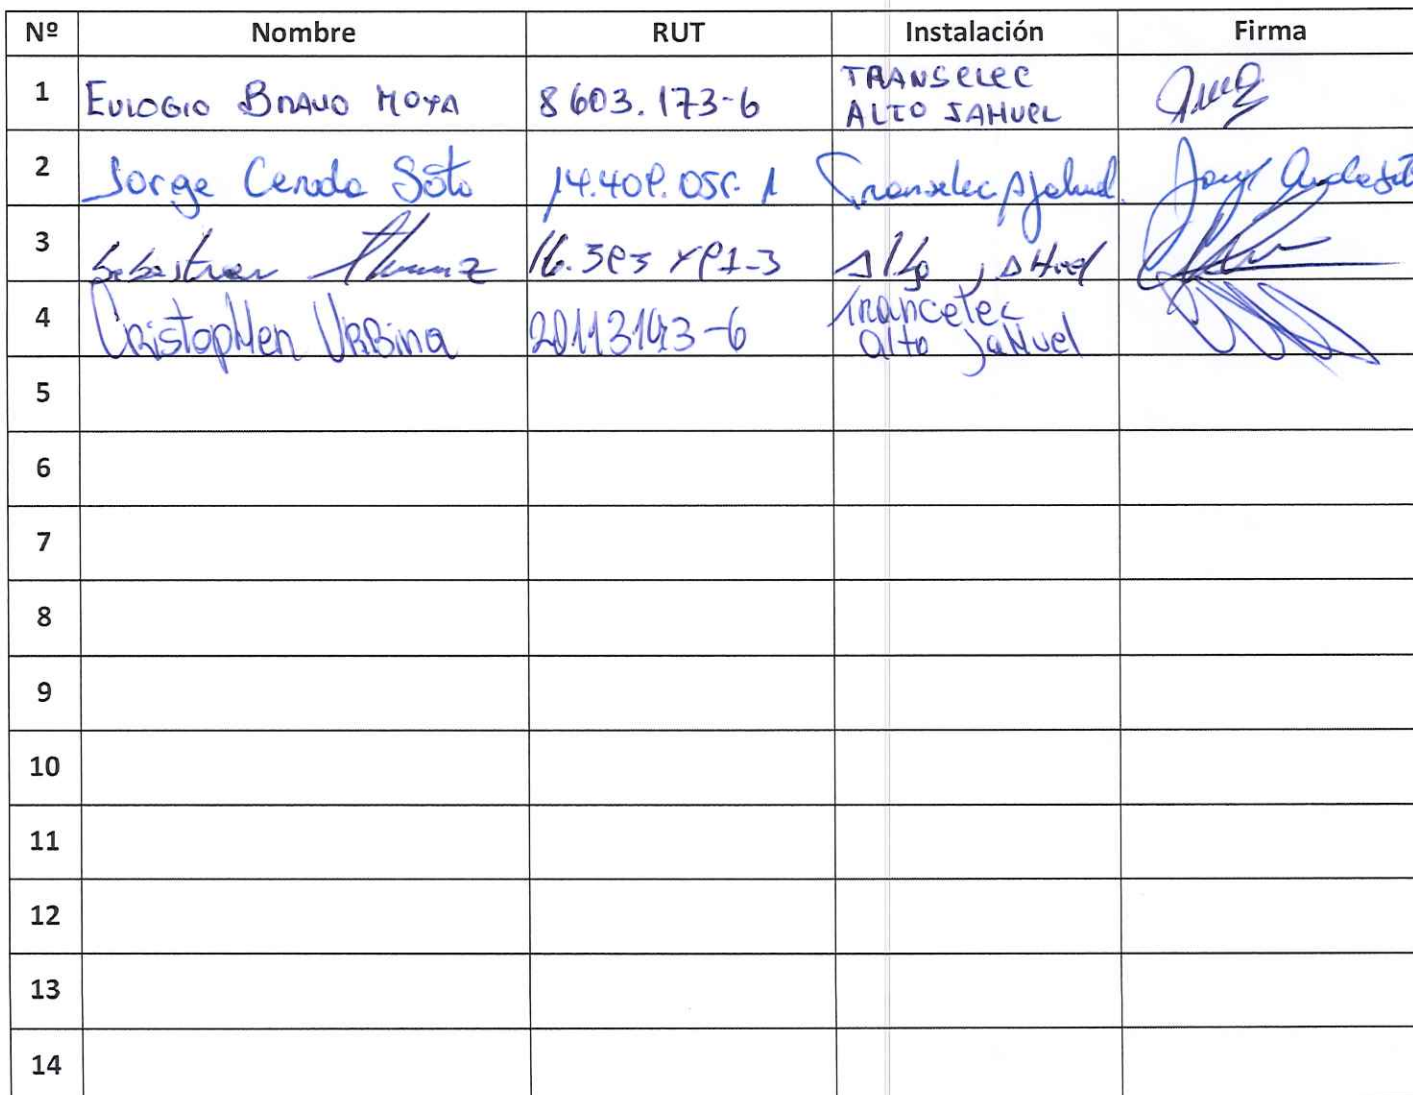 Nº Nombre RUT Instalación Firma
1 EULOGIO BRAVO MOYA 8603.173-6 TRANSELEC
ALTO JAHUEL
2 Jorge Cerda Soto 14.408.05 1 Transelec Ajahuel
3 Sebastian 16.3 1-3 Alto JAHuel
4 CRistopHer URBina 20113193-6 Trancelec
alto jaHuel
5
6
7
8
9
10
11
12
13
14